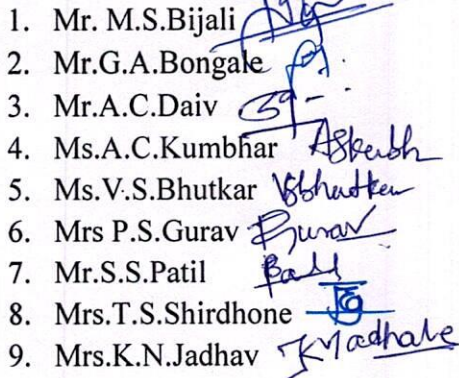 1. Mr. M.S.Bijali
2. Mr.G.A.Bongale
3. Mr.A.C.Daiv
4. Ms.A.C.Kumbhar
5. Ms.V.S.Bhutkar VSbhutkar
6. Mrs P.S.Gurav Gurav
7. Mr.S.S.Patil
8. Mrs.T.S.Shirdhone
9. Mrs.K.N.Jadhav